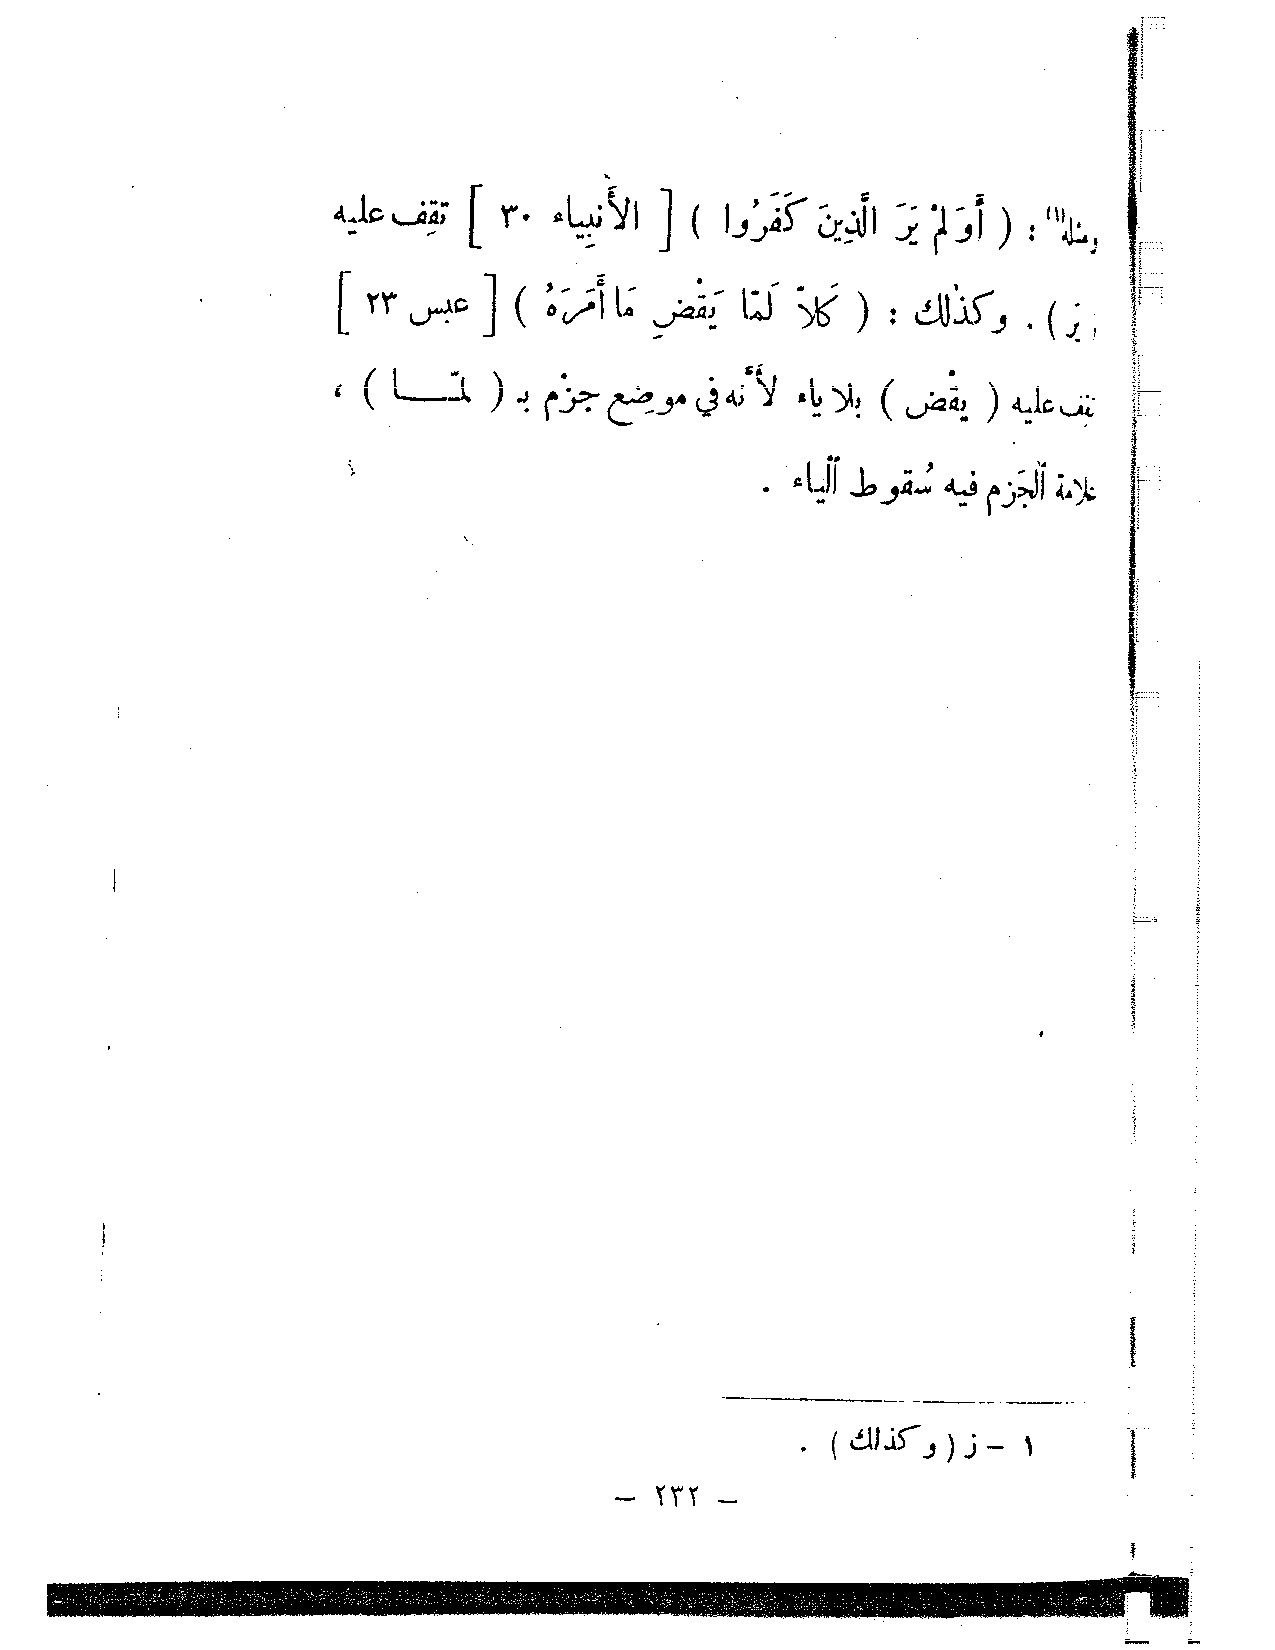 ومثله(١) : ( أَوَلَمْ يَرَ الَّذِينَ كَفَرُوا ) [ الأَنبِياء ٣٠ ] تقِف عليه
( يَرَ ) . وكذٰلك : ( كَلاّ لَمّا يَقْضِ مَا أَمَرَهُ ) [ عبس ٢٣ ]
تقِف عليه ( يقْض ) بلا ياء لأَنّه في موضِع جزْم بـ ( لمّـــا ) ،
علامة ٱلجَزم فيه سُقوط ٱلياء .
١ – ز ( وكذلك ) .
– ٢٣٢ –